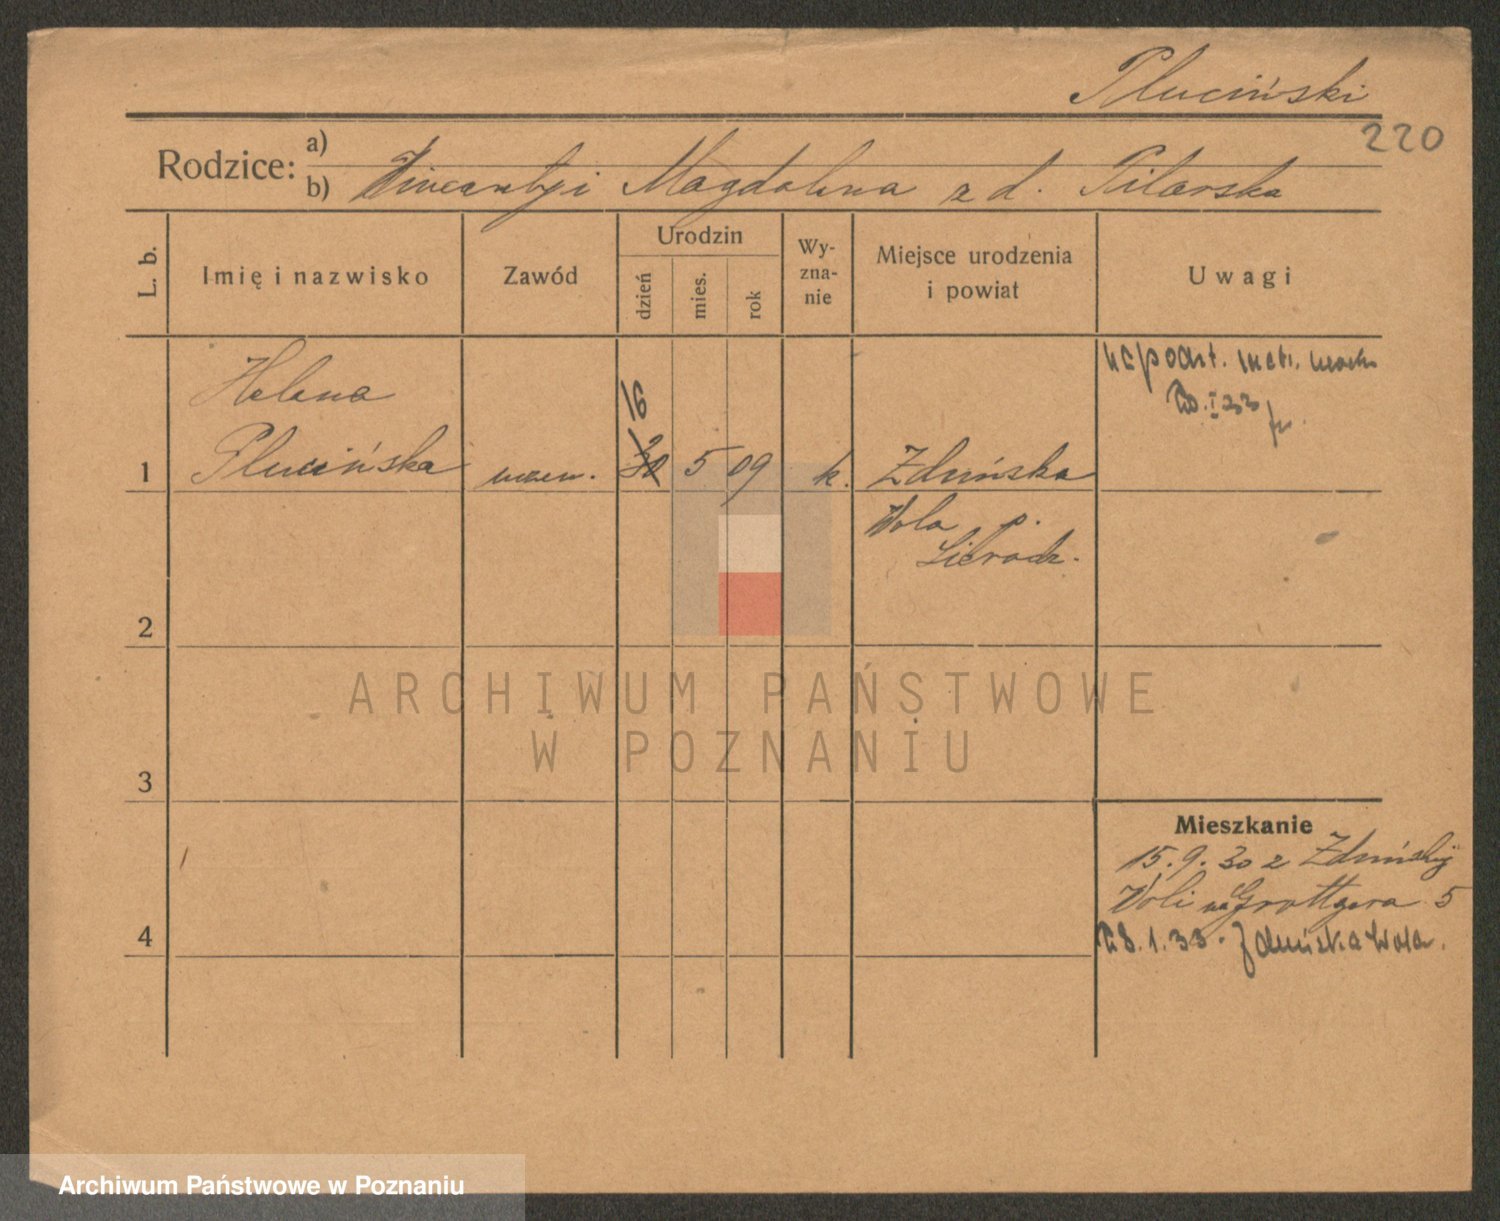 Pluciński
220
Rodzice: a)
b) Wincenty i Magdalena z d. Pilarska
L. b.
Imię i nazwisko
Zawód
Urodzin
dzień
mies.
rok
Wy-
zna-
nie
Miejsce urodzenia
i powiat
Uwagi
Helena
1 Plucińska uczen. 16 30 5 09 k. Zduńska
Wola p.
Sieradz.
na podst. metr.
I 33
2
3
4
Mieszkanie
15.9.30 z Zduńskiej
Woli na Grottgera 5
28.1.33. Zduńska Wola.
ARCHIWUM PAŃSTWOWE
W POZNANIU
Archiwum Państwowe w Poznaniu